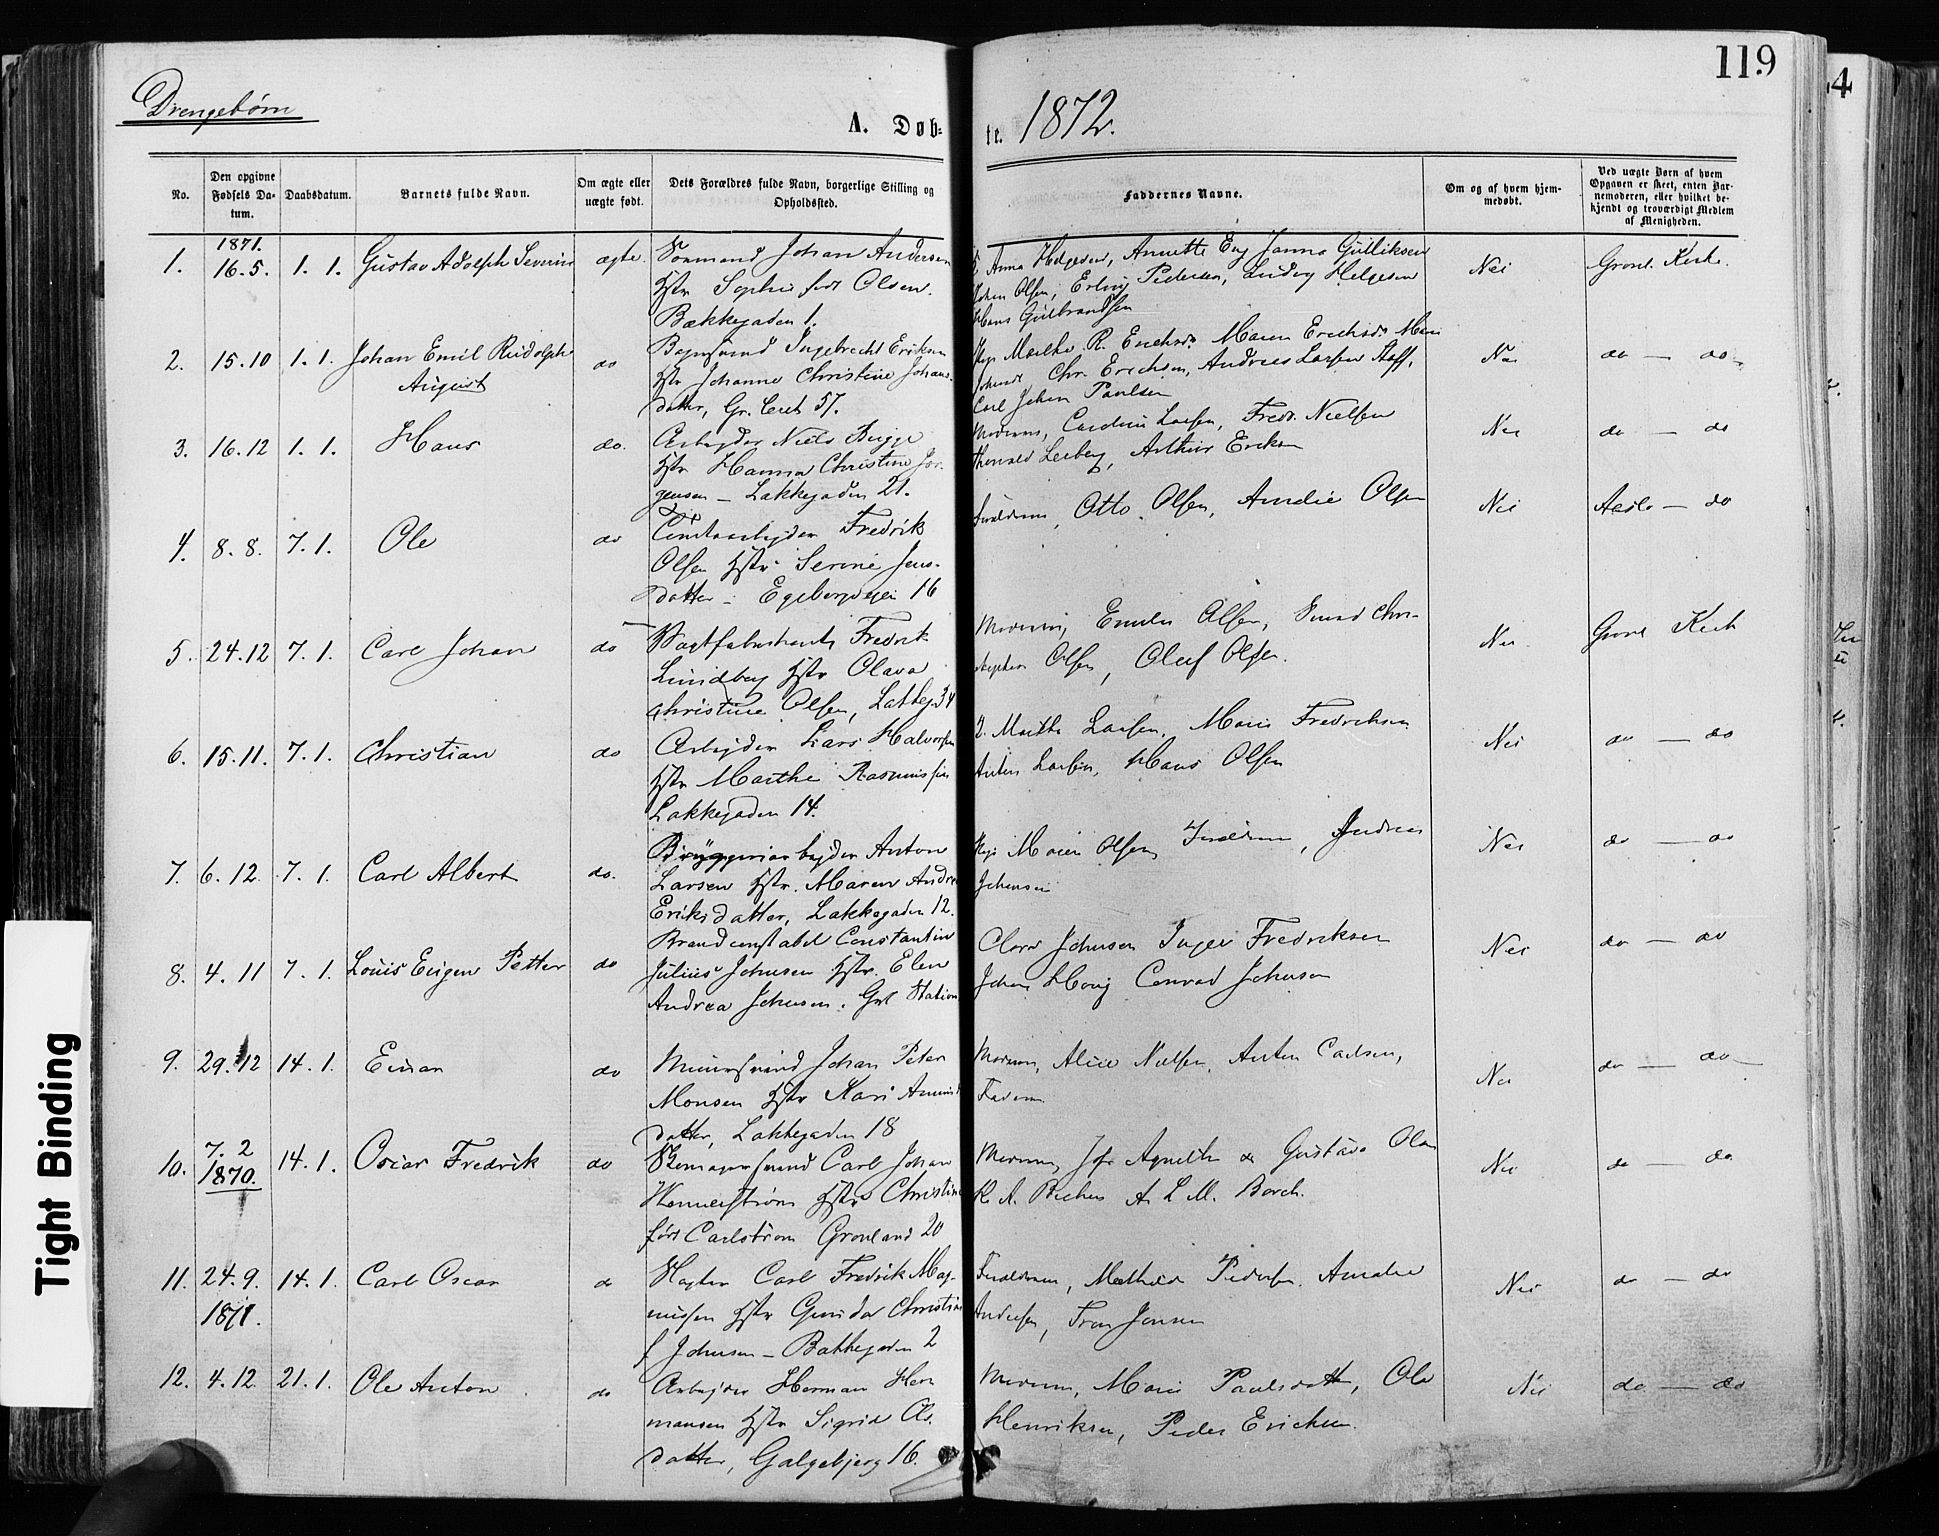 119
4
Drengebørn
A. Døb-
te. 1872.
No.
Den opgivne Fødsels Da-tum.
Daabsdatum.
Barnets fulde Navn.
Om ægte eller uægte født.
Dets Forældres fulde Navn, borgerlige Stilling og Opholdssted.
Faddernes Navne.
Om og af hvem hjem-medøbt.
Ved uægte Børn af hvem Opgaven er skeet, enten Bar-nemoderen, eller hvilket be-kjendt og troværdigt Medlem af Menigheden.
1871.
1. 16.5. 1. 1. Gustav Adolph Severin ægte. Johan Andersen
Hstr Sophie født Olsen.
Bækkegaden 1.
Anna Helgesen, Annette Eng Janna Gulliksen
Johan Olsen, Erling Pedersen, Ludvig Helgesen
Hans Gulbrandsen
Nei
Grønl. Kirke
2. 15.10 1. 1. Johan Emil Rudolph
August
do
Ingebrecht Eriksen
Hstr Johanne Christine Johans-
datter, Gr. Leret 57.
Marthe R. Erichsd. Maren Erichsd. Mari
Chr. Erichsen, Andreas Larsen
Carl Johan Paulsen
Nei
do — do
3. 16.12 1. 1. Hans do. Arbeider Niels Bugge
Hstr Hanna Christine Jør-
gensen — Lakkegaden 21.
Moderen, Caroline Larsen, Fredr. Nielsen
Arthur Eriksen
Nei
do — do
4. 8.8. 7. 1. Ole do Fredrik
Olsen Hstr Serine Jens-
datter — Egebergveien 16
Forældrene, Otto Olsen, Amalie Olsen
Nei
— do
5. 24.12 7. 1. Carl Johan do Fredrik
Lundberg Hstr Olava
Christine Olsen, Lakkeg 34
Moderen, Emilie Olsen, Chri-
Olsen, Oluf Olsen.
Nei
Grønl Kirk
6. 15.11. 7. 1. Christian do Arbeider Lars Halvorsen
Hstr Marthe Rasmussen
Lakkegaden 14.
Marthe Larsen, Marie Fredriksen
Anton Larsen, Hans Olsen
Nei
do — do
7. 6.12. 7. 1. Carl Albert do. Bryggeriarbeider Anton
Larsen Hstr. Maren Andrea
Eriksdatter, Lakkegaden 12.
Maren Olsen, Forældrene, Andreas
Johansen
Nei
do — do
8. 4.11 7. 1. Louis Eugen Petter do Brandconstabel Constantin
Julius Johnsen Hstr. Elen
Andrea Johnsen. Grl Station
Clara Johnsen Inger Fredriksen
Johan Høvig Conrad Johnson
Nei
do — do
9. 29.12 14. 1. Einar do Muursvend Johan Peter
Monsen Hstr Kari Amund
datter, Lakkegaden 18
Moderen, Alice Nielsen, Anton Carlsen,
Faderen.
Nei
do — do
10. 7. 2
1870. 14. 1. Oscar Fredrik do Skomagersvend Carl Johan
Wennerstrøm Hstr Christine
født Carlstrøm Grønland 20
Moderen, Jfr Agnethe & Gustava Olsen
A. L. M. Borch.
Nei
do — do
11. 24.9.
1871. 14. 1. Carl Oscar do Carl Fredrik Mag-
nussen Hstr Gunda Christine
f Johnsen — Bakkegaden 2
Forældrene, Mathilde Pedersen, Amalie
Andersen, Jensen
Nei
do — do
12. 4.12. 21. 1. Ole Anton do Arbeider Herman Her
mansen Hstr Sigrid Ols-
datter, Galgebjerg 16.
Moderen, Marie Paulsdatt, Ole
Henriksen, Peder Erichsen.
Nei
do — do
Tight Binding